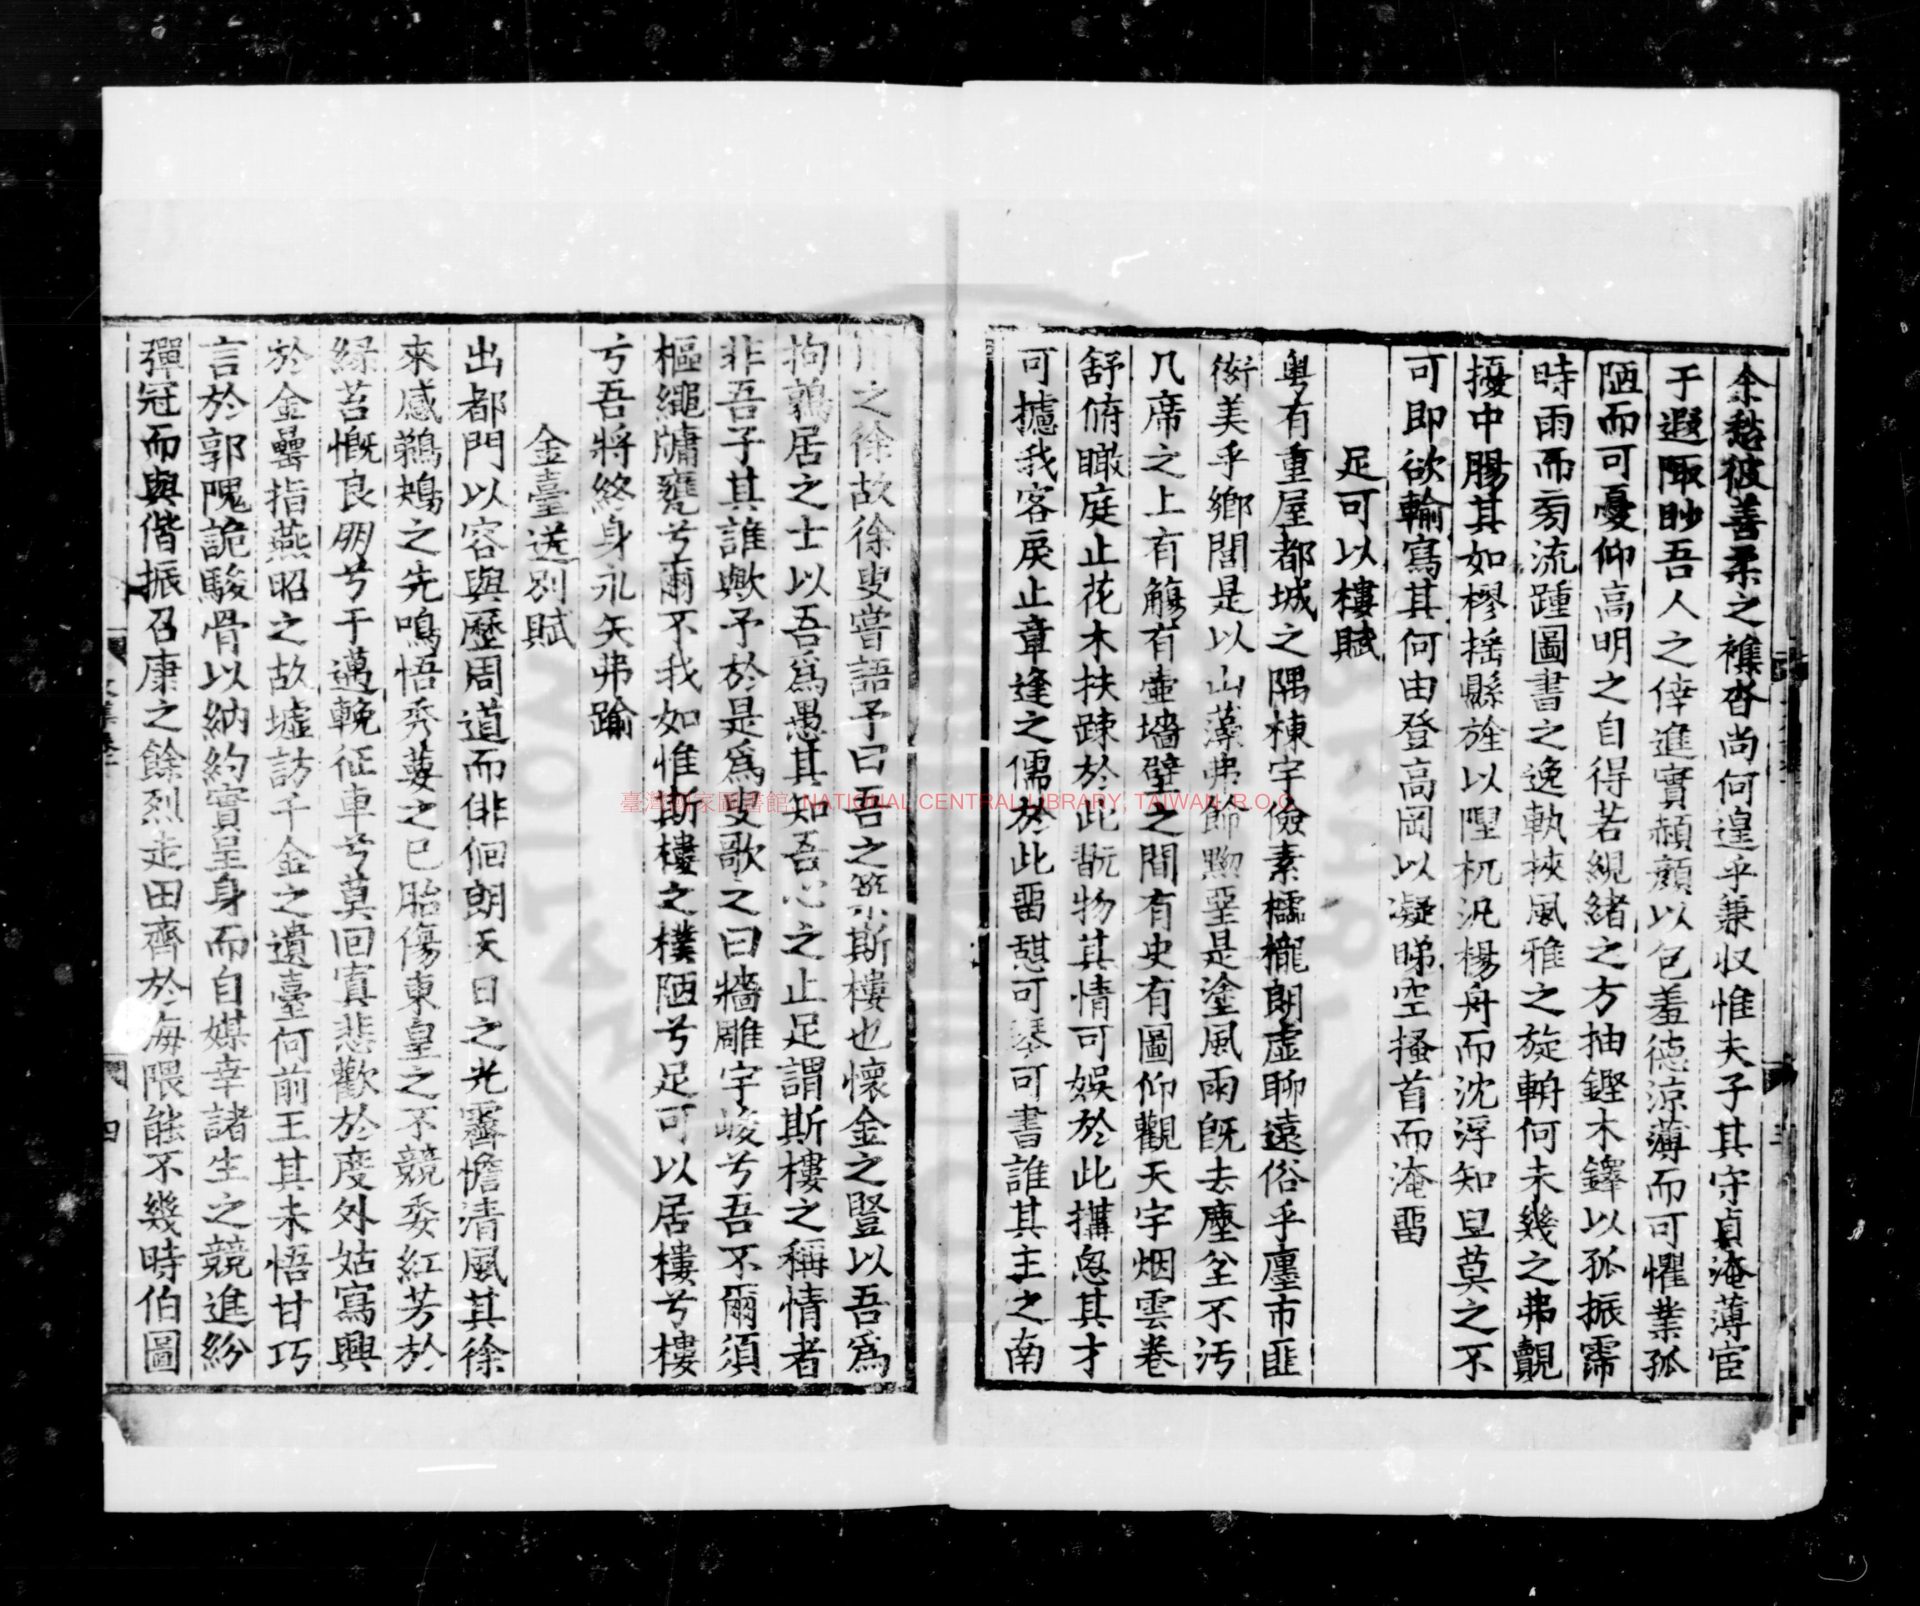 余愁彼善柔之襍沓尚何遑乎兼收惟夫子其守貞淹薄宦
于遐陬眇吾人之倖進實赬顔以包羞德凉薄而可懼業孤
陋而可憂仰高明之自得若緄緒之方抽鏗木鐸以孤振霈
時雨而旁流踵圖書之逸執挾風雅之旋輈何未幾之弗覿
擾中腸其如樛揺縣旌以隉杌汎楊舟而沈浮知旦莫之不
可即欲輸寫其何由登高岡以凝睇空搔首而淹畱
足可以樓賦
粤有重屋都城之隅棟宇儉素櫺櫳朗虚聊遠俗乎廛市匪
衒美乎鄉閭是以山藻弗飾黝堊是塗風雨旣去塵坌不汚
几席之上有觴有壷墻壁之間有史有圖仰觀天宇烟雲卷
舒俯瞰庭止花木扶踈於此翫物其情可娱於此搆思其才
可攄我客戾止章逢之儒於此畱憇可琴可書誰其主之南
州之徐故徐叟嘗語予曰吾之築斯樓也懷金之豎以吾爲
拘鶉居之士以吾爲愚其知吾心之止足謂斯樓之稱情者
非吾子其誰歟予於是爲叟歌之曰墻雕宇峻兮吾不爾須
樞繩牖甕兮爾不我如惟斯樓之樸陋兮足可以居樓兮樓
兮吾將終身永矢弗踰
金臺送别賦
出都門以容與歷周道而俳佪朗天日之光霽憺清風其徐
來感鵜鴂之先鳴悟秀葽之已胎傷東皇之不競委紅芳於
緑苔慨良朋兮于邁輓征車兮莫回寘悲歡於度外姑寫興
於金罍指燕昭之故墟訪千金之遺臺何前王其未悟甘巧
言於郭隗詭駿骨以納約實呈身而自媒幸諸生之競進紛
彈冠而與偕振召康之餘烈走田齊於海隈能不幾時伯圖
四
臺灣國家圖書館, NATIONAL CENTRAL LIBRARY, TAIWAN, R.O.C